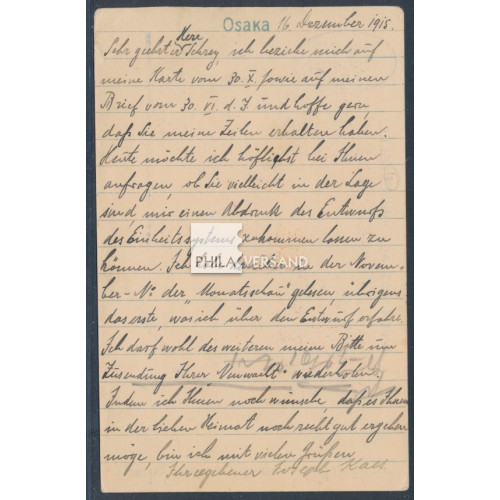 Osaka 16. Dezember 1915.
Herr
Sehr geehrter Schrey, ich beziehe mich auf
meine Karte vom 30. X. sowie auf meinen
Brief vom 30. VI. d. J. und hoffe gern,
daß Sie meine Zeilen erhalten haben.
Heute möchte ich höflichst bei Ihnen
anfragen, ob Sie vielleicht in der Lage
sind, mir einen Abdruck des Entwurfs
des Einheitssystems zukommen lassen zu
können. Ich in der Novem-
ber-No. der „Monatschau" gelesen, übrigens
das erste, was ich über den Entwurf erfahre.
Ich darf wohl des weiteren meine Bitte um
Zusendung Ihrer wiederholen.
Indem ich Ihnen noch wünsche, daß es Ihnen
in der lieben Heimat noch recht gut ergehen
möge, bin ich mit vielen Grüßen
Ihr ergebener Joseph
PHILA VERSAND